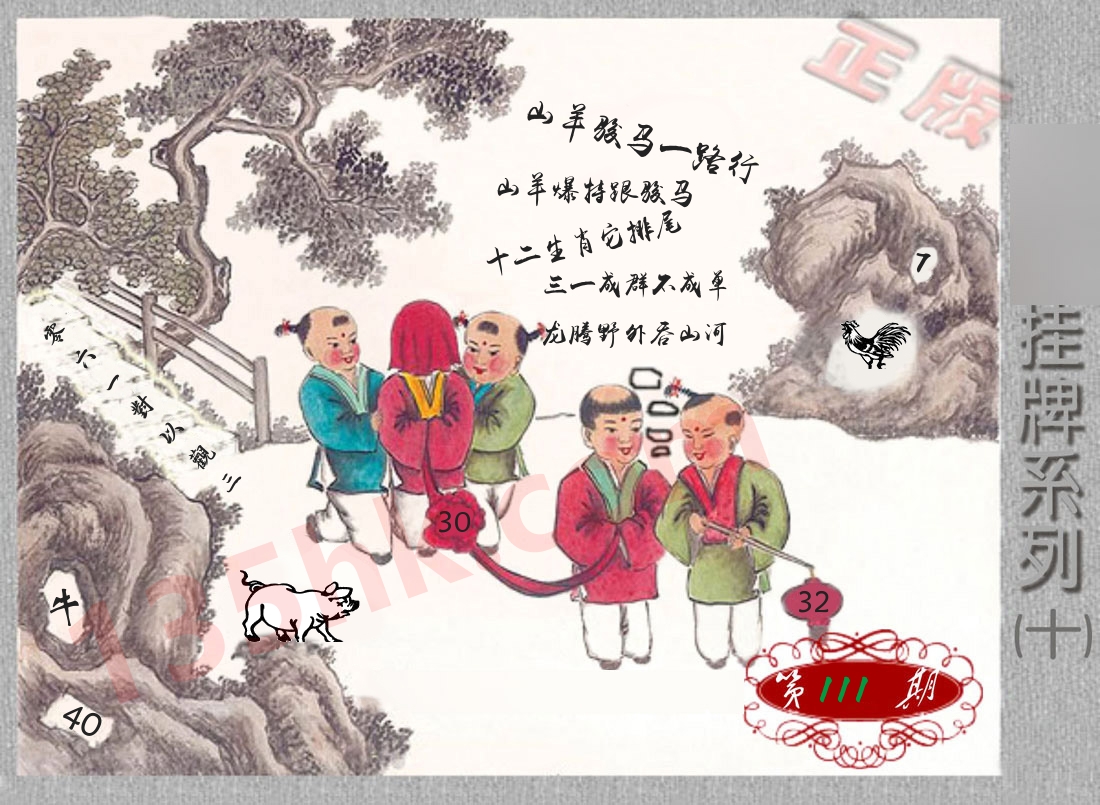 正版
山羊骏马一路行
山羊爆特跟骏马
十二生肖它排尾
三一成群不成单
龙腾野外吞山河
7
零六一對以觀三
30
32
牛
40
第111期
挂牌系列(十)
135hk.com